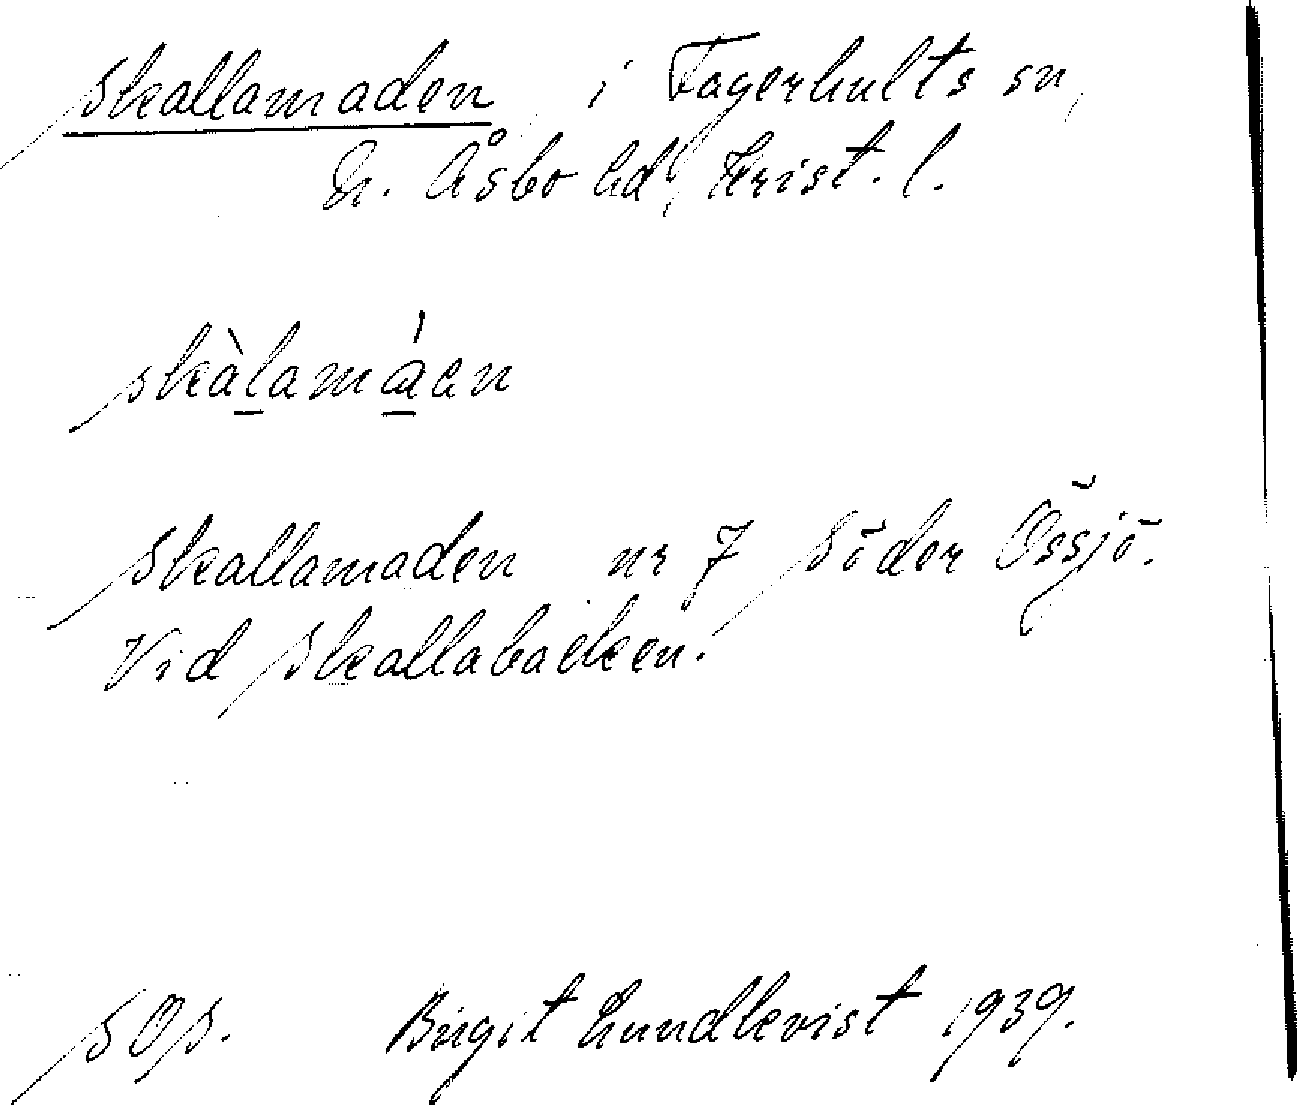 Skallamaden i Fagerhults sn,
N. Åsbo hd, Krist. l.
skàlamáen
Skallamaden nr 7 Söder Össjö.
Vid Skallabacken.
SOS. Birgit Lundkvist 1939.